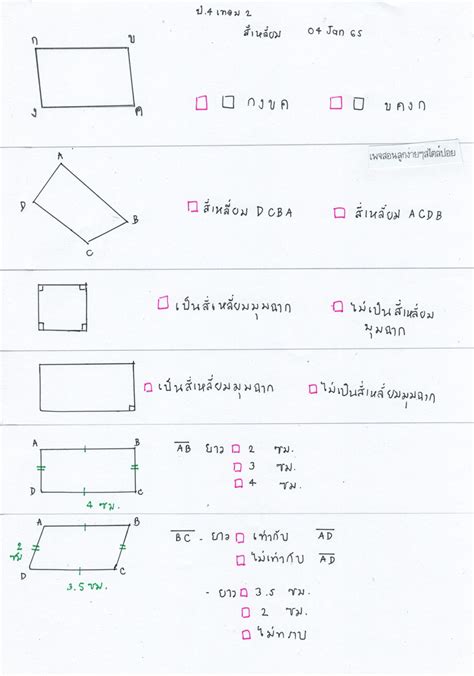 ป.4 เทอม 2
สี่เหลี่ยม 04 Jan 65
ก ข
ง ค
□ □ กงขค □ □ ขคงก
เพจสอนลูกง่ายๆสไตล์ปอย
A
D
B
C
□ สี่เหลี่ยม DCBA □ สี่เหลี่ยม ACDB
□ เป็นสี่เหลี่ยมมุมฉาก □ ไม่เป็นสี่เหลี่ยม
มุมฉาก
□ เป็นสี่เหลี่ยมมุมฉาก □ ไม่เป็นสี่เหลี่ยมมุมฉาก
A B
D C
4 ซม.
AB ยาว □ 2 ซม.
□ 3 ซม.
□ 4 ซม.
A B
2 ซม
D C
3.5 ซม.
BC - ยาว □ เท่ากับ AD
□ ไม่เท่ากับ AD
- ยาว □ 3.5 ซม.
□ 2 ซม.
□ ไม่ทราบ